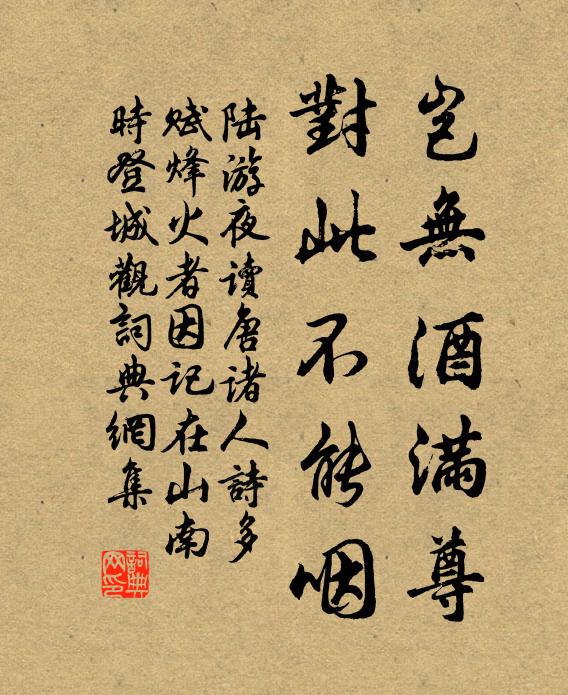 豈無酒滿尊
對此不能咽
陆游夜讀唐诸人詩多
赋烽火者因记在山南
時登城觀詞典網集
詞典网印